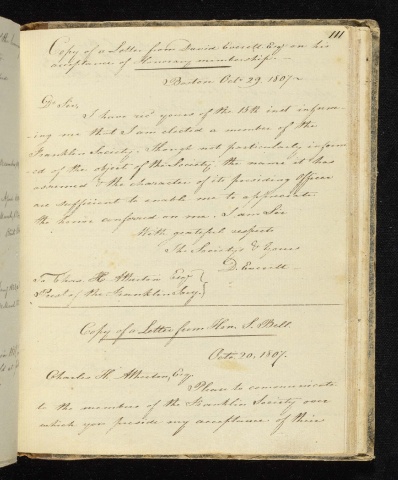 111
Copy of a Letter from David Everett Esq on his
acceptance of Honorary membership.
Boston Oct. 29. 1807
Dr Sir,
I have recd yours of the 18th inst inform-
ing me that I am elected a member of the
Franklin Society. Though not particularly inform
ed of the object of the Society, the name it has
assumed & the character of its presiding Officer
are sufficient to enable me to appreciate
the honor conferred on me. I am Sir
With grateful respects
The Society's & Yours
D. Everett
To Chas. H. Atherton Esqr
Prest of the Franklin Socy.
Copy of a Letter from Hon. S. Bell.
Octr 20, 1807.
Charles H. Atherton, Esq.
Please to communicate
to the members of the Franklin Society over
which you preside my acceptance of their